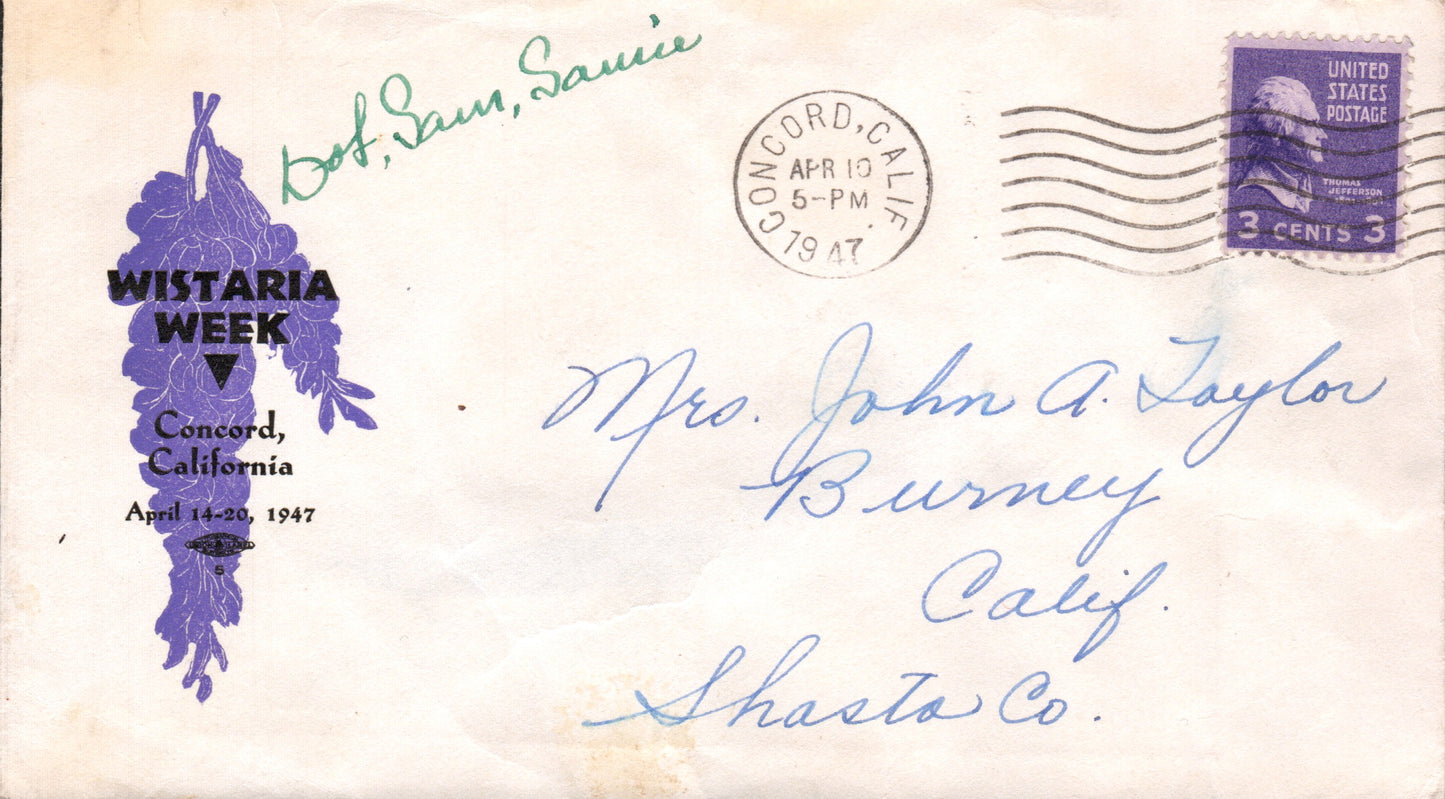 Dot, Sam, Samie
WISTARIA
WEEK
Concord,
California
April 14-20, 1947
5
CONCORD, CALIF.
APR 10
5-PM
1947
UNITED
STATES
POSTAGE
THOMAS
JEFFERSON
3 CENTS 3
Mrs. John A. Taylor
Burney
Calif.
Shasta Co.